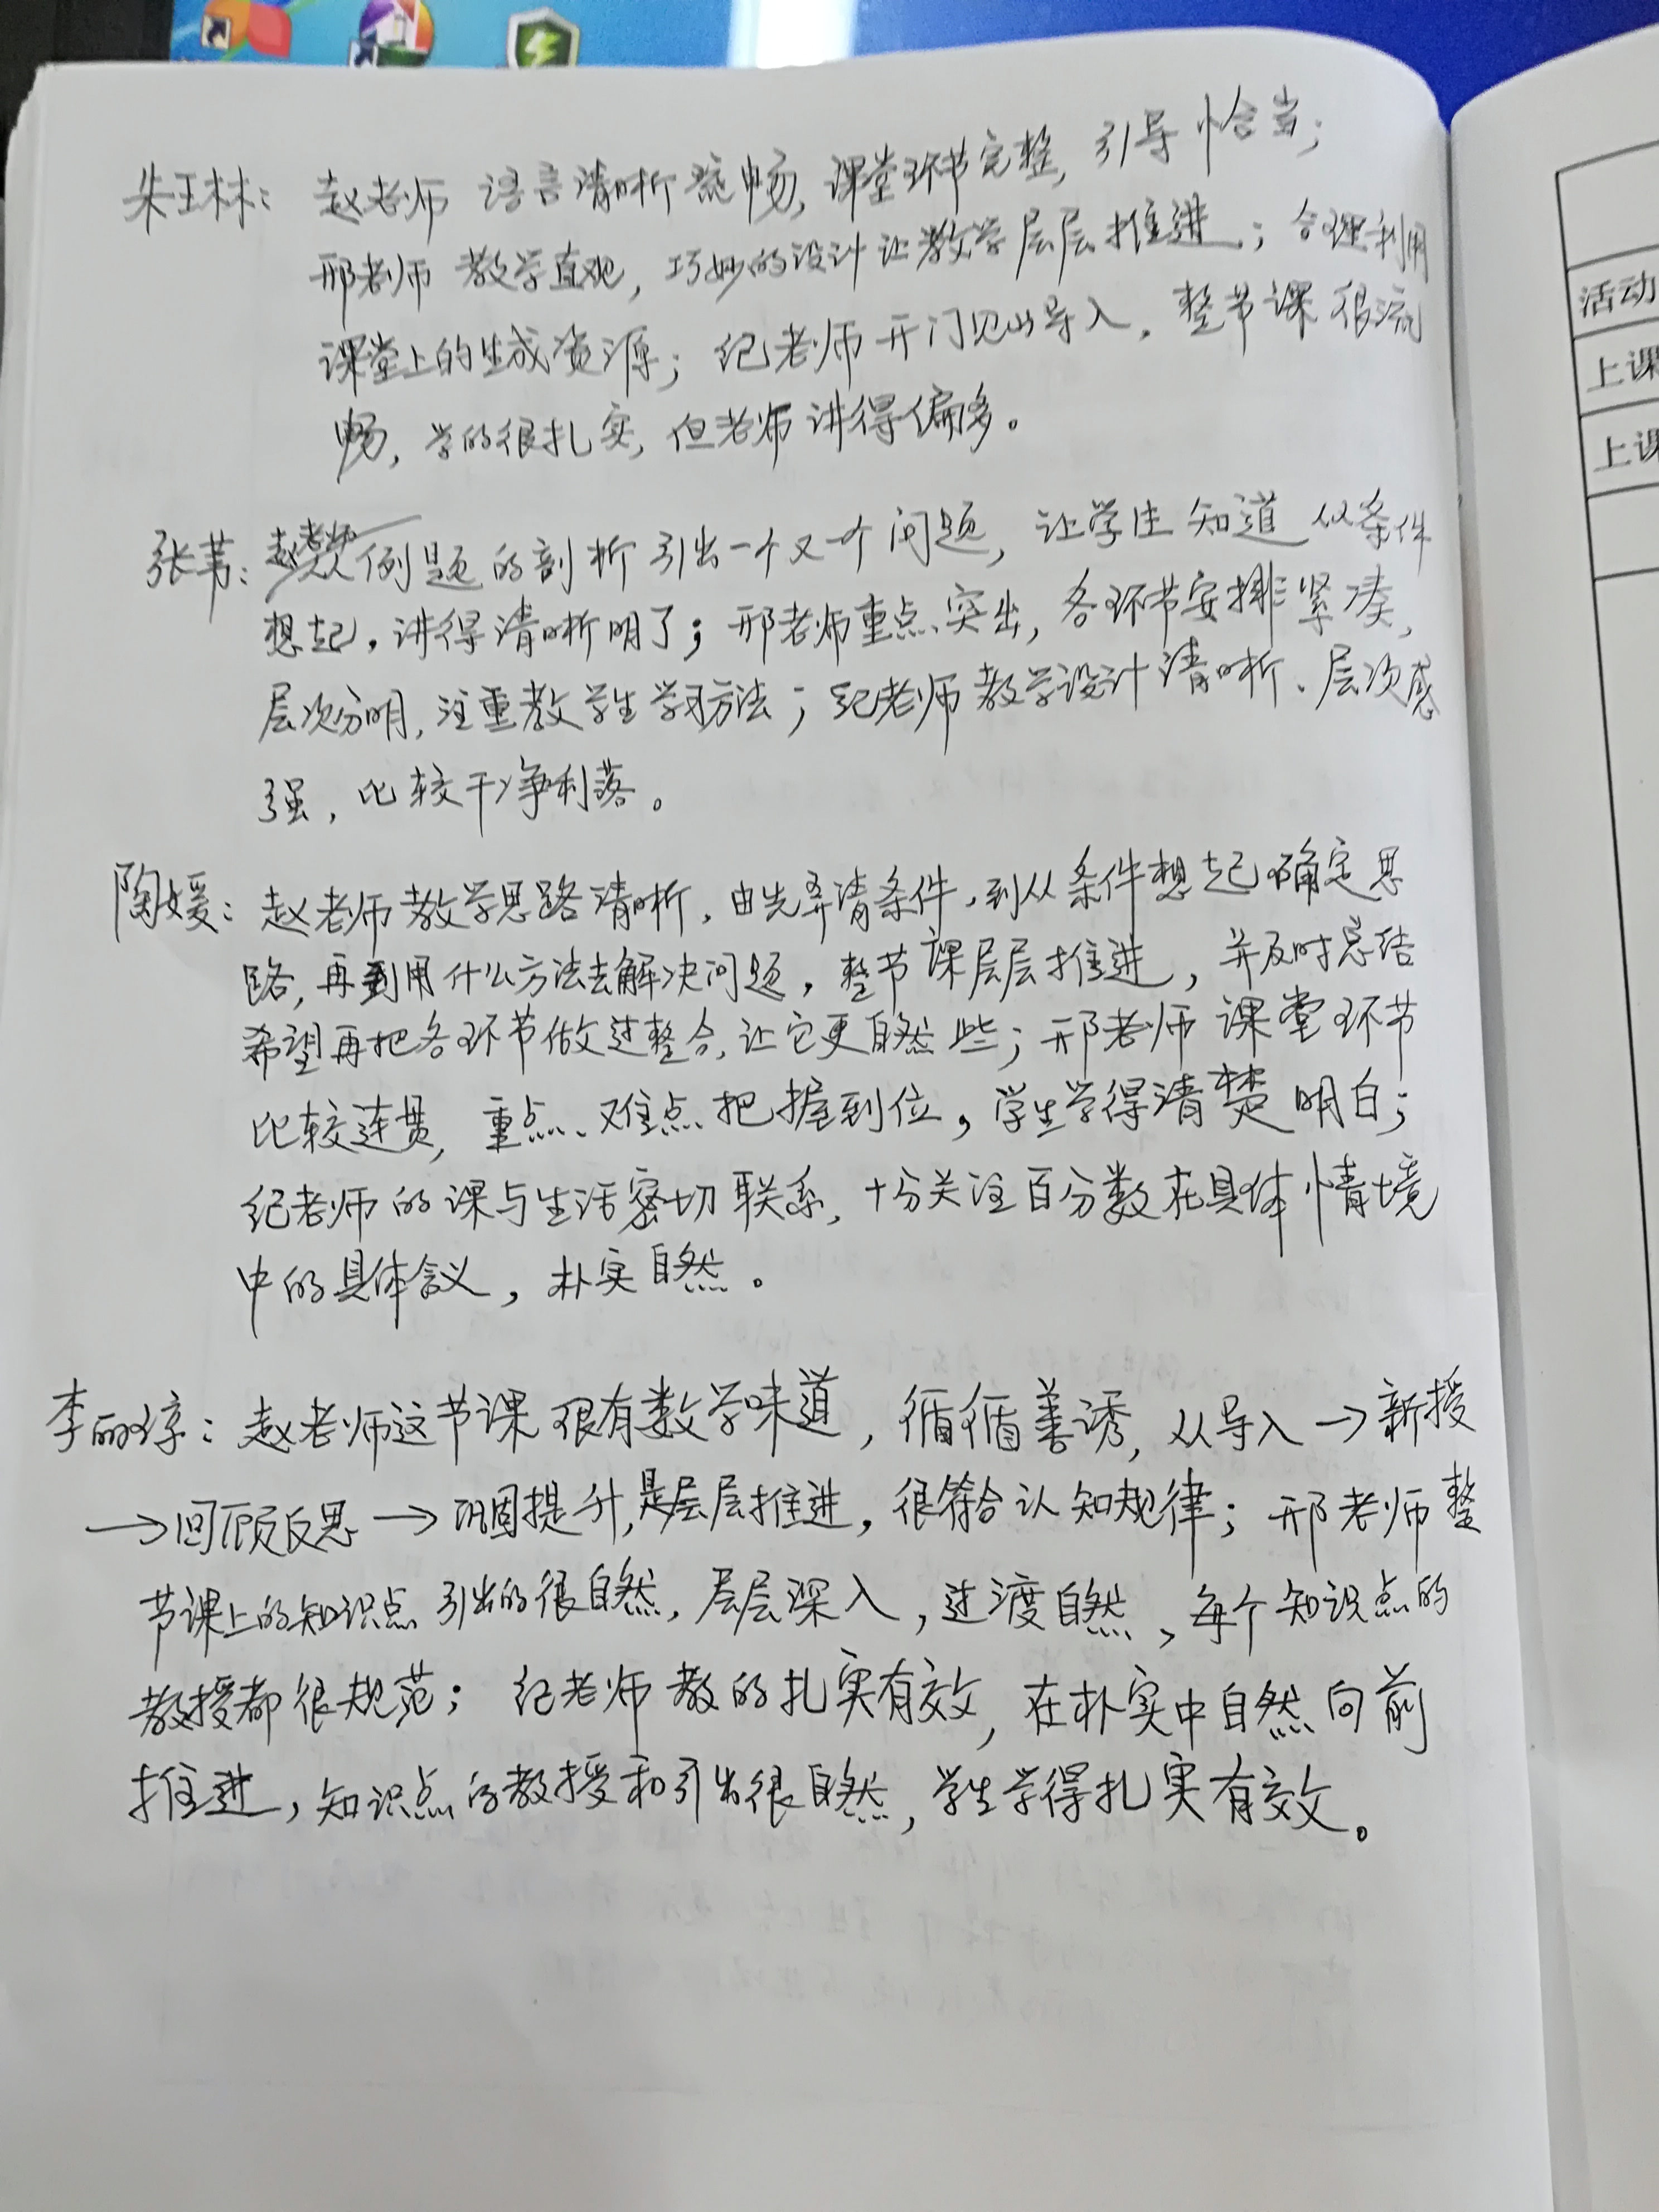 朱玉林：赵老师 语言清晰流畅，课堂环节完整，引导恰当；
邢老师 教学直观，巧妙的设计让教学层层推进；合理利用
课堂上的生成资源；纪老师开门见山导入，整节课很流
畅，学的很扎实，但老师讲得偏多。
张苇：赵老师例题的剖析引出一个又一个问题，让学生知道从条件
想起，讲得清晰明了；邢老师重点突出，各环节安排紧凑，
层次分明，注重教学生学习方法；纪老师教学设计清晰、层次感
强，比较干净利落。
陶媛：赵老师教学思路清晰，由先弄清条件，到从条件想起确定思
路，再到用什么方法去解决问题，整节课层层推进，并及时总结
希望再把各环节做过整合，让它更自然些；邢老师课堂环节
比较连贯，重点、难点把握到位，学生学得清楚明白；
纪老师的课与生活密切联系，十分关注百分数在具体情境
中的具体含义，朴实自然。
李丽琼：赵老师这节课很有数学味道，循循善诱，从导入→新授
→回顾反思→巩固提升，是层层推进，很符合认知规律；邢老师整
节课上的知识点引出的很自然，层层深入，过渡自然，每个知识点的
教授都很规范；纪老师教的扎实有效，在朴实中自然向前
推进，知识点的教授和引出很自然，学生学得扎实有效。
活动
上课
上课